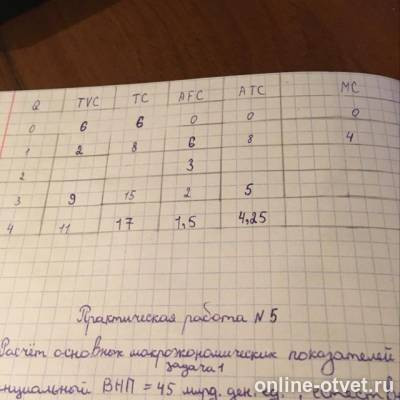 Q TVC TC AFC ATC MC
0 6 6 0 0 0
1 2 8 6 8 4
2 3
3 9 15 2 5
4 11 17 1,5 4,25
Практическая работа N 5
Расчёт основных макроэкономических показателей
задача 1
енциальный ВНП = 45 млрд. ден. ед.,
online-otvet.ru